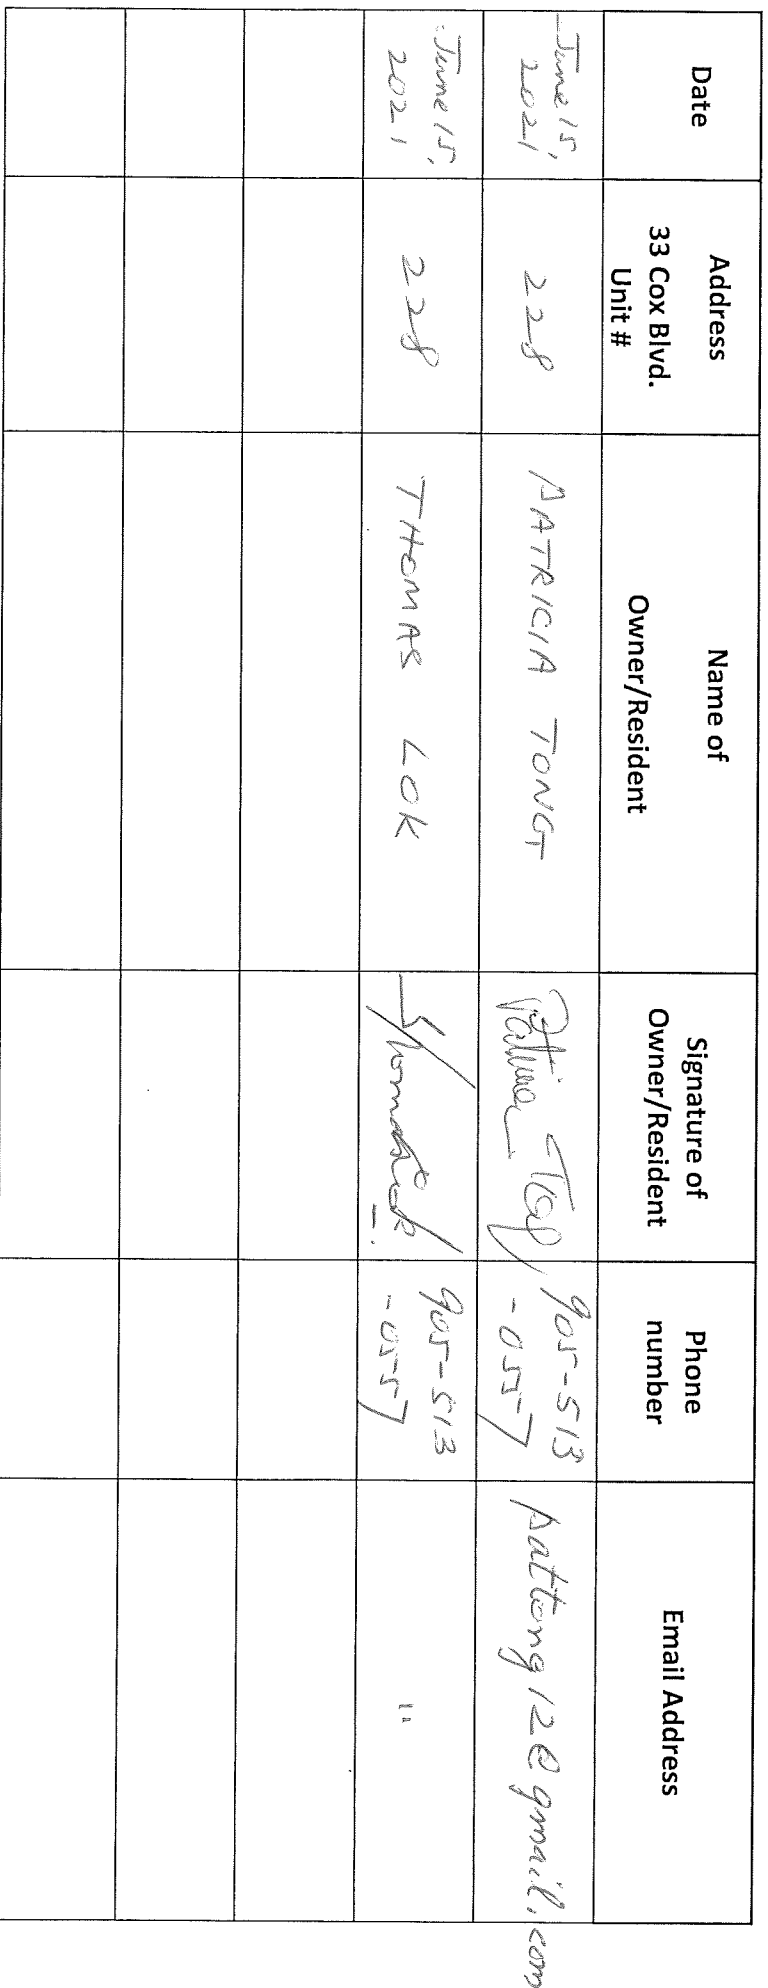 Date
Address
33 Cox Blvd.
Unit #
Name of
Owner/Resident
Signature of
Owner/Resident
Phone
number
Email Address
June 15,
2021
228
PATRICIA TONG
Patricia Tong
905-513
-0557
pattong12@gmail.com
June 15,
2021
228
THOMAS LOK
Thomas Lok
905-513
-0557
"